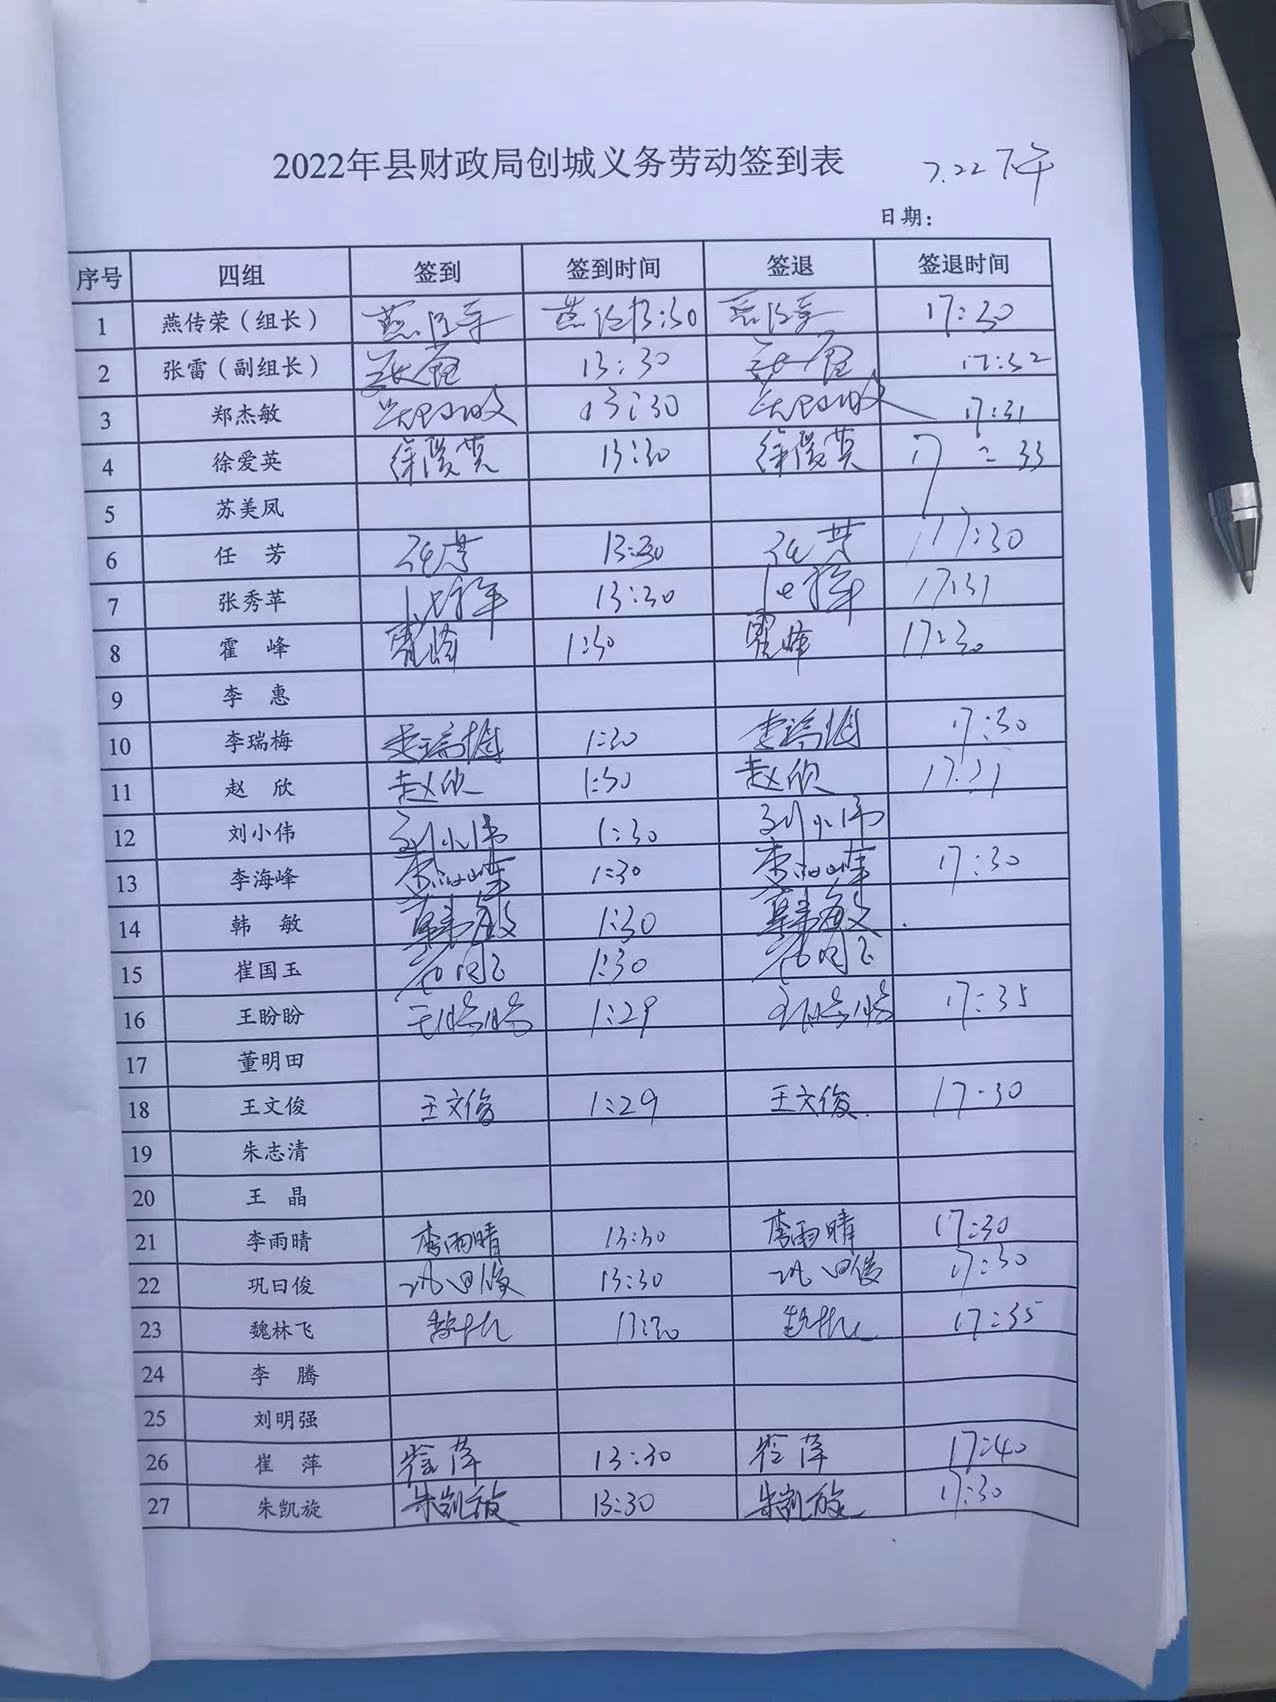 2022年县财政局创城义务劳动签到表 7.22下午
日期：
序号 四组 签到 签到时间 签退 签退时间
1 燕传荣（组长） 燕传荣 燕传13:30 燕传荣 17:30
2 张雷（副组长） 张雷 13:30 张雷 17:32
3 郑杰敏 郑杰敏 13:30 郑杰敏 17:31
4 徐爱英 徐爱英 13:30 徐爱英 17:33
5 苏美凤
6 任 芳 任芳 13:30 任芳 17:30
7 张秀苹 13:30 17:31
8 霍 峰 霍峰 1:30 霍峰 17:30
9 李 惠
10 李瑞梅 李瑞梅 1:30 李瑞梅 17:30
11 赵 欣 赵欣 1:30 赵欣 17:31
12 刘小伟 刘小伟 1:30 刘小伟
13 李海峰 李海峰 1:30 李海峰 17:30
14 韩 敏 韩敏 1:30 韩敏
15 崔国玉 崔国玉 1:30 崔国玉
16 王盼盼 王盼盼 1:29 王盼盼 17:35
17 董明田
18 王文俊 王文俊 1:29 王文俊 17:30
19 朱志清
20 王 晶
21 李雨晴 李雨晴 13:30 李雨晴 17:30
22 巩曰俊 巩曰俊 13:30 巩曰俊 17:30
23 魏林飞 13:30 17:35
24 李 腾
25 刘明强
26 崔 萍 崔萍 13:30 崔萍 17:40
27 朱凯旋 朱凯旋 13:30 朱凯旋 17:30